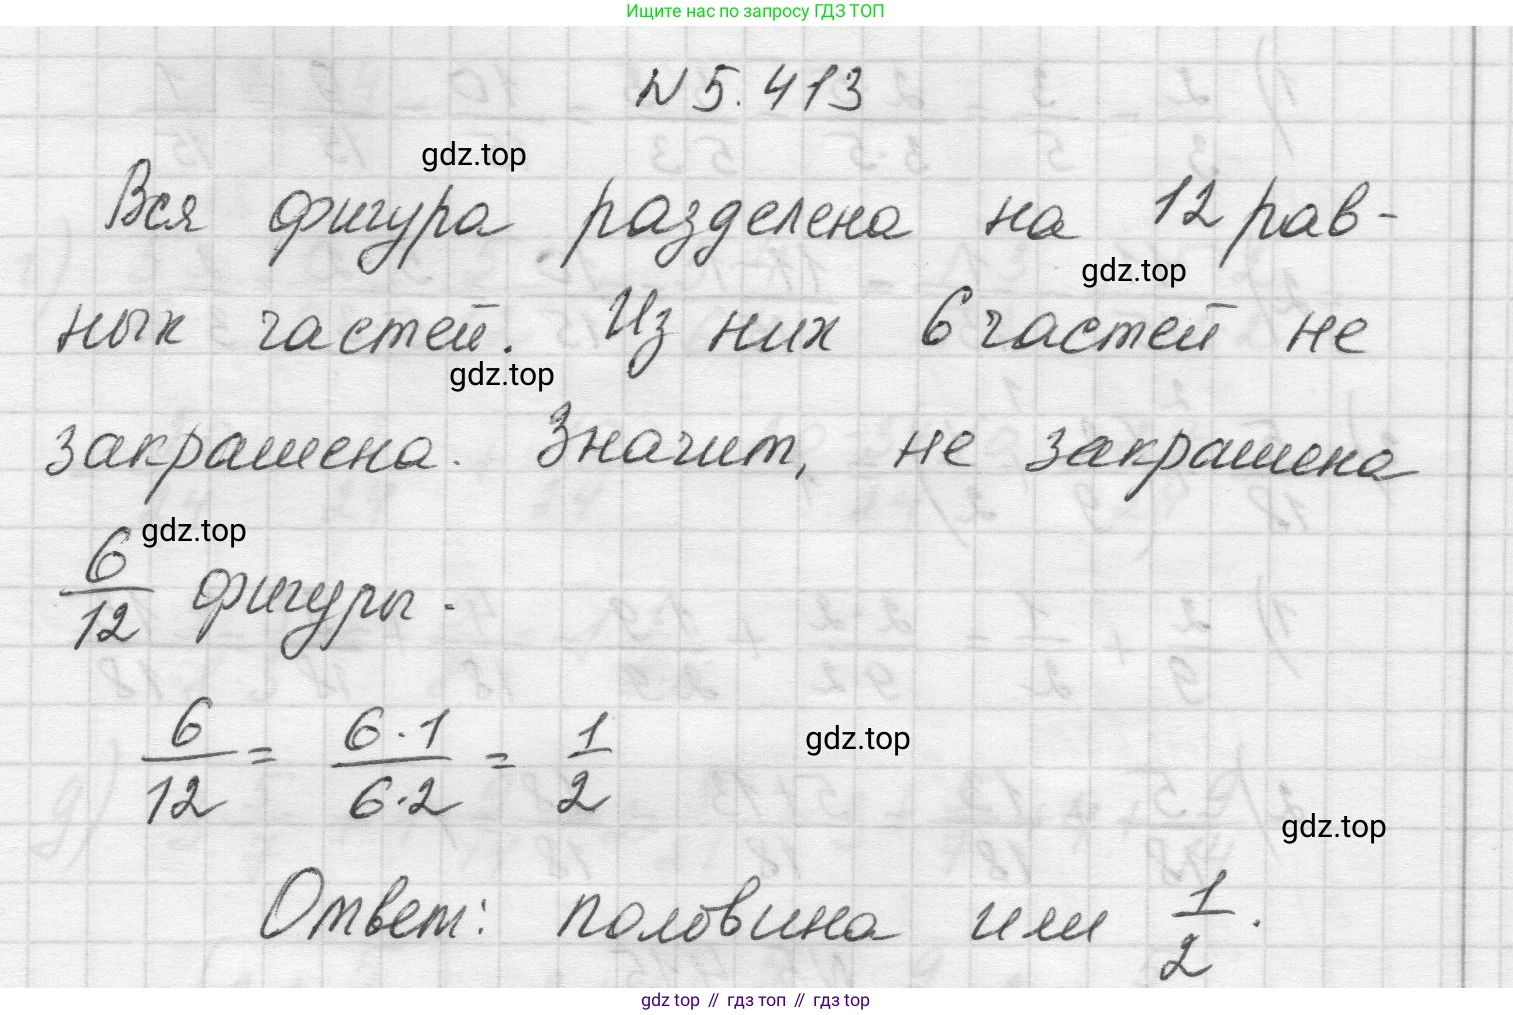 Ищите нас по запросу ГДЗ ТОП
№ 5.413
gdz.top
Вся фигура разделена на 12 рав-
gdz.top
ных частей. Из них 6 частей не
gdz.top
закрашена. Значит, не закрашена
gdz.top
6/12 фигуры.
6/12 = 6·1/6·2 = 1/2
gdz.top
gdz.top
Ответ: половина или 1/2.
gdz top // гдз топ // гдз top